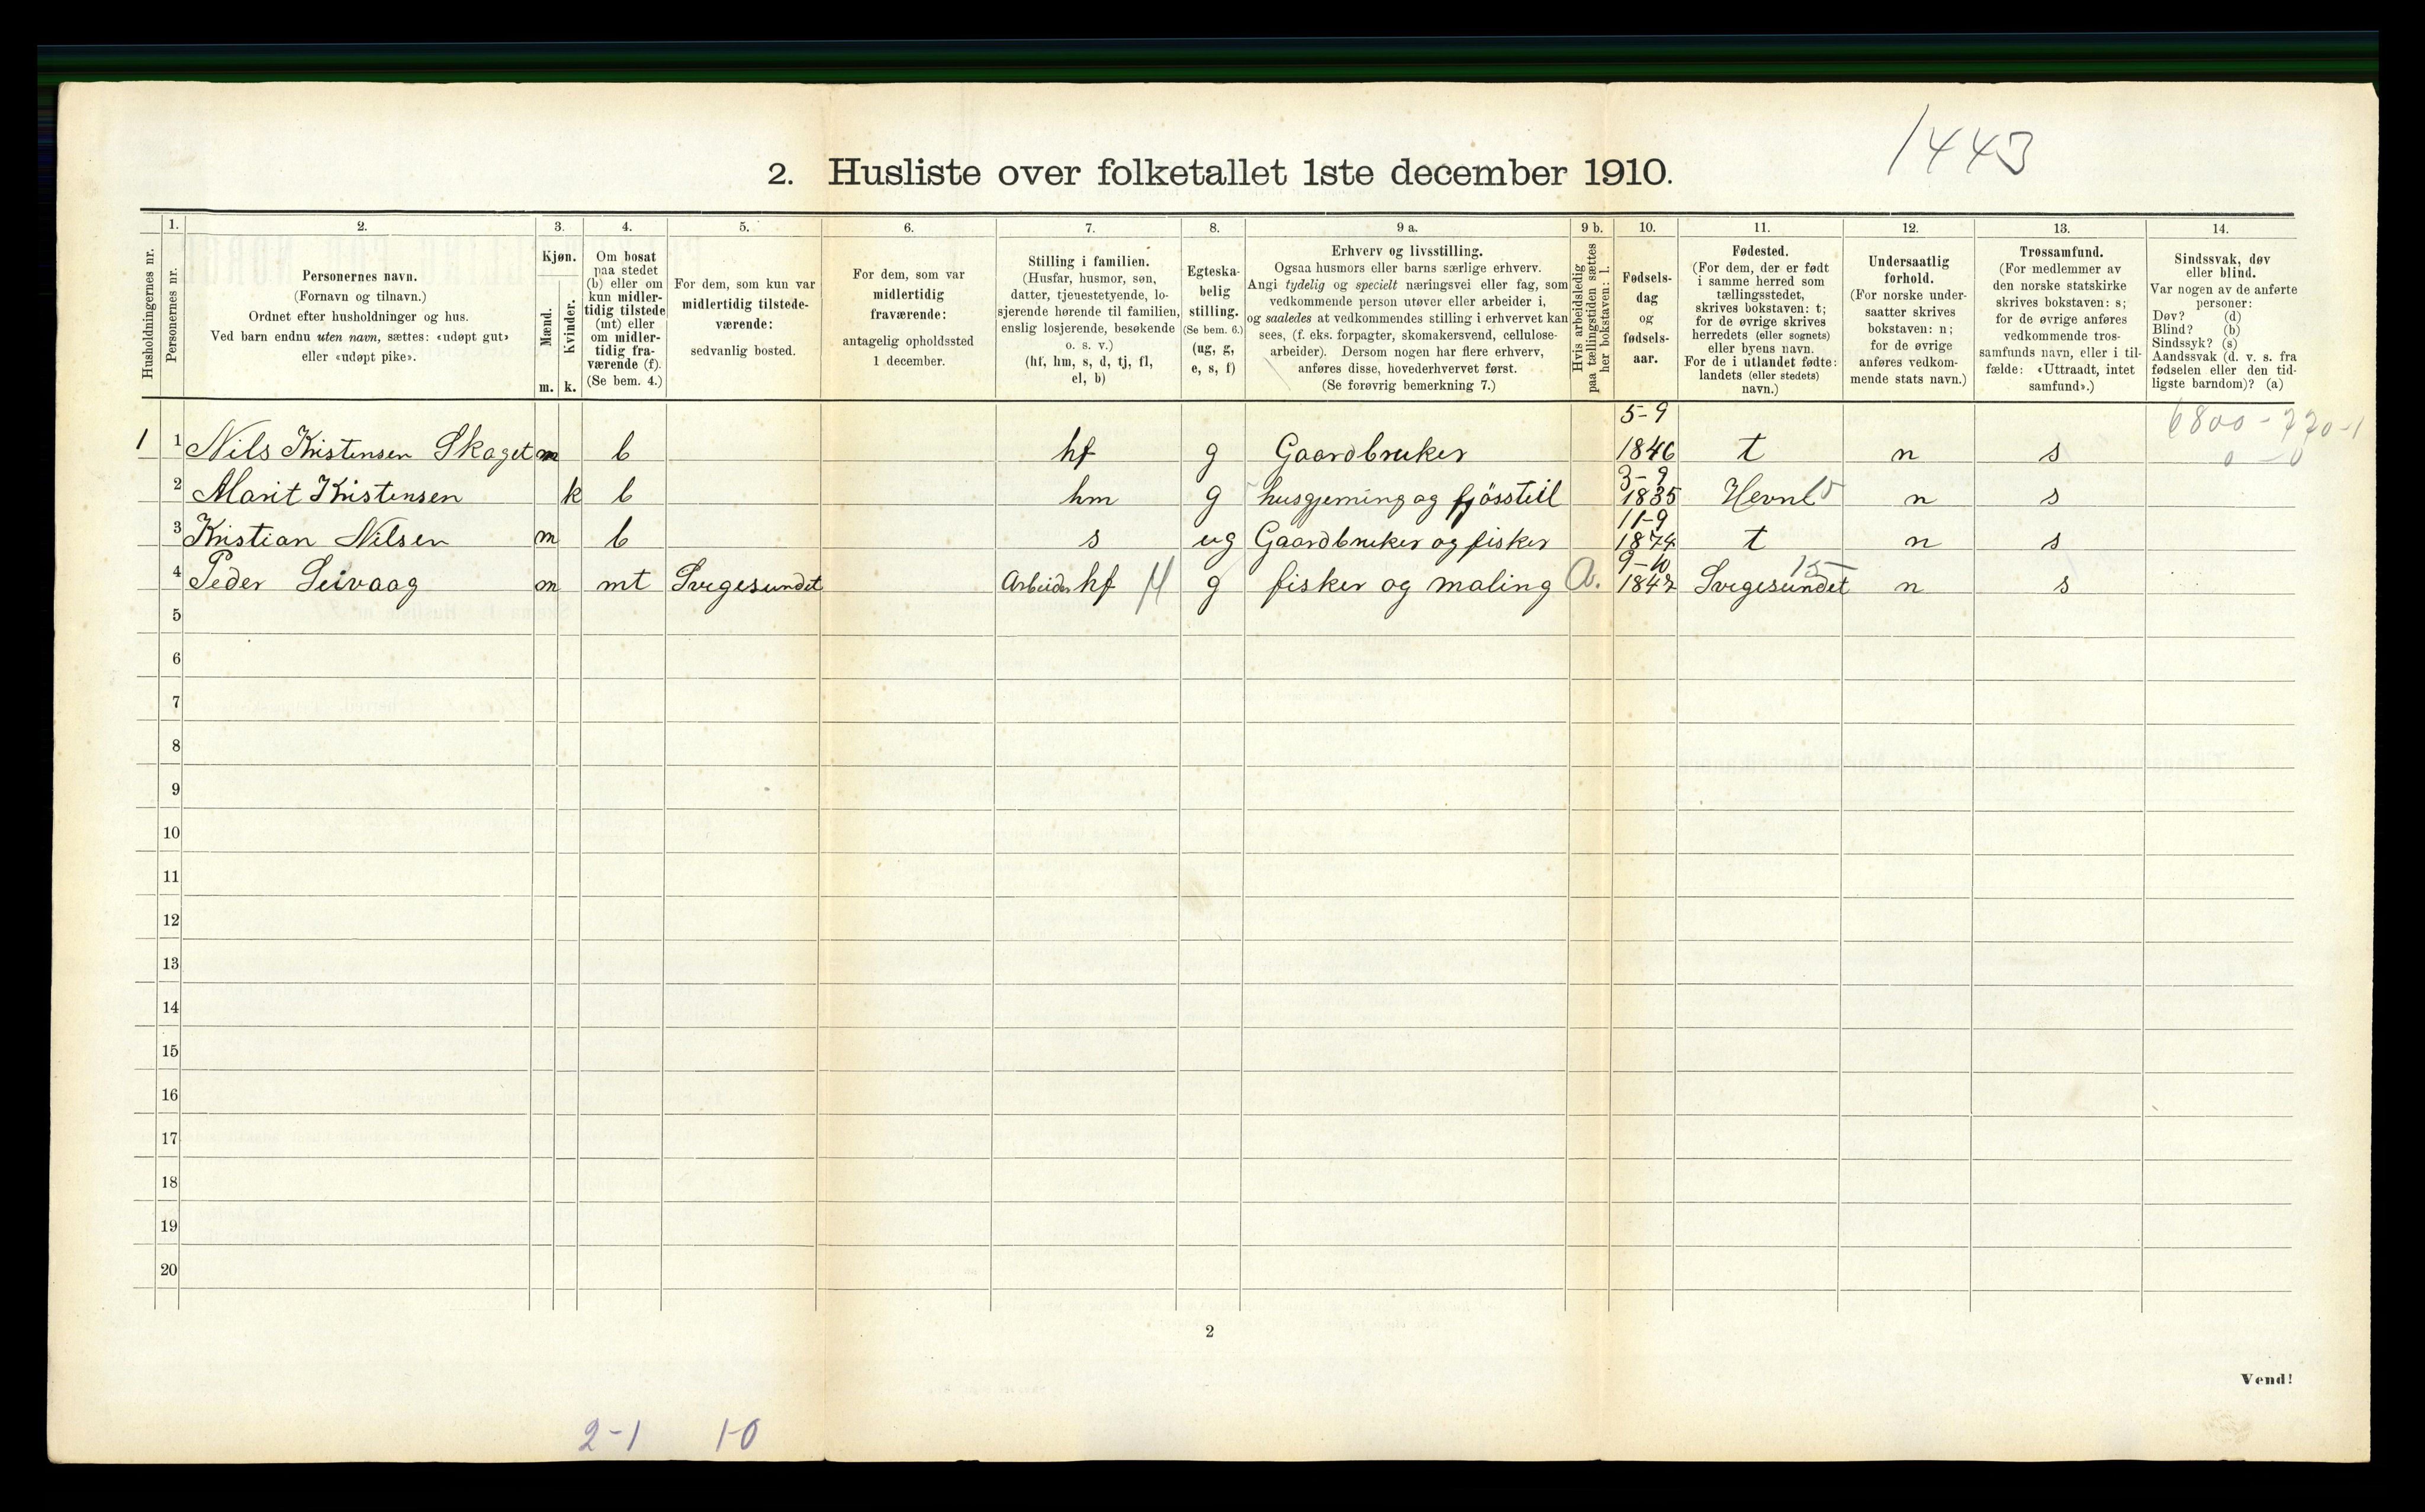 1443
2. Husliste over folketallet 1ste december 1910.
Husholdningernes nr.
1.
Personernes nr.
2.
Personernes navn.
(Fornavn og tilnavn.)
Ordnet efter husholdninger og hus.
Ved barn endnu uten navn, sættes: «udøpt gut»
eller «udøpt pike».
3.
Kjøn.
Mænd.
Kvinder.
m. k.
4.
Om bosat
paa stedet
(b) eller om
kun midler-
tidig tilstede
(mt) eller
om midler-
tidig fra-
værende (f).
(Se bem. 4.)
5.
For dem, som kun var
midlertidig tilstede-
værende:
sedvanlig bosted.
6.
For dem, som var
midlertidig
fraværende:
antagelig opholdssted
1 december.
7.
Stilling i familien.
(Husfar, husmor, søn,
datter, tjenestetyende, lo-
sjerende hørende til familien,
enslig losjerende, besøkende
o. s. v.)
(hf, hm, s, d, tj, fl,
el, b)
8.
Egteska-
belig
stilling.
(Se bem. 6.)
(ug, g,
e, s, f)
9 a.
Erhverv og livsstilling.
Ogsaa husmors eller barns særlige erhverv.
Angi tydelig og specielt næringsvei eller fag, som
vedkommende person utøver eller arbeider i,
og saaledes at vedkommendes stilling i erhvervet kan
sees, (f. eks. forpagter, skomakersvend, cellulose-
arbeider). Dersom nogen har flere erhverv,
anføres disse, hovederhvervet først.
(Se forøvrig bemerkning 7.)
9 b.
Hvis arbeidsledig
paa tællingstiden sættes
her bokstaven: l.
10.
Fødsels-
dag
og
fødsels-
aar.
11.
Fødested.
(For dem, der er født
i samme herred som
tællingsstedet,
skrives bokstaven: t;
for de øvrige skrives
herredets (eller sognets)
eller byens navn.
For de i utlandet fødte:
landets (eller stedets)
navn.)
12.
Undersaatlig
forhold.
(For norske under-
saatter skrives
bokstaven: n;
for de øvrige
anføres vedkom-
mende stats navn.)
13.
Trossamfund.
(For medlemmer av
den norske statskirke
skrives bokstaven: s;
for de øvrige anføres
vedkommende tros-
samfunds navn, eller i til-
fælde: «Uttraadt, intet
samfund».)
14.
Sindssvak, døv
eller blind.
Var nogen av de anførte
personer:
Døv? (d)
Blind? (b)
Sindssyk? (s)
Aandssvak (d. v. s. fra
fødselen eller den tid-
ligste barndom)? (a)
6800-770-1
0-0
1 1 Nils Kristensen Skaget m b hf g Gaardbruker 5-9 1846 t n s
2 Marit Kristensen k b hm g husgjerning og fjösstell 3-9 1835 Hevne 15 n s
3 Kristian Nilsen m b s ug Gaardbruker og fisker 11-9 1874 t n s
4 Peder Leivaag m mt Svegesundet Arbeider hf g fisker og maling a. 9-10 1847 Svegesundet 15 n s
5
6
7
8
9
10
11
12
13
14
15
16
17
18
19
20
2
Vend!
2-1 1-0